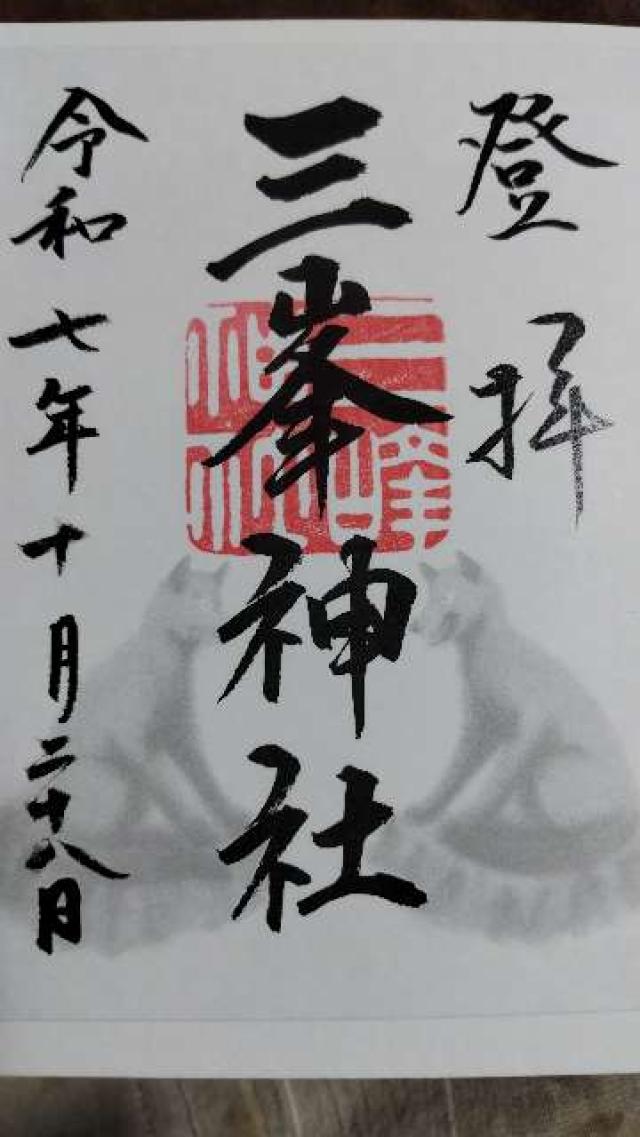 登拝
三峯神社
三峰神社
令和七年十月二十八日